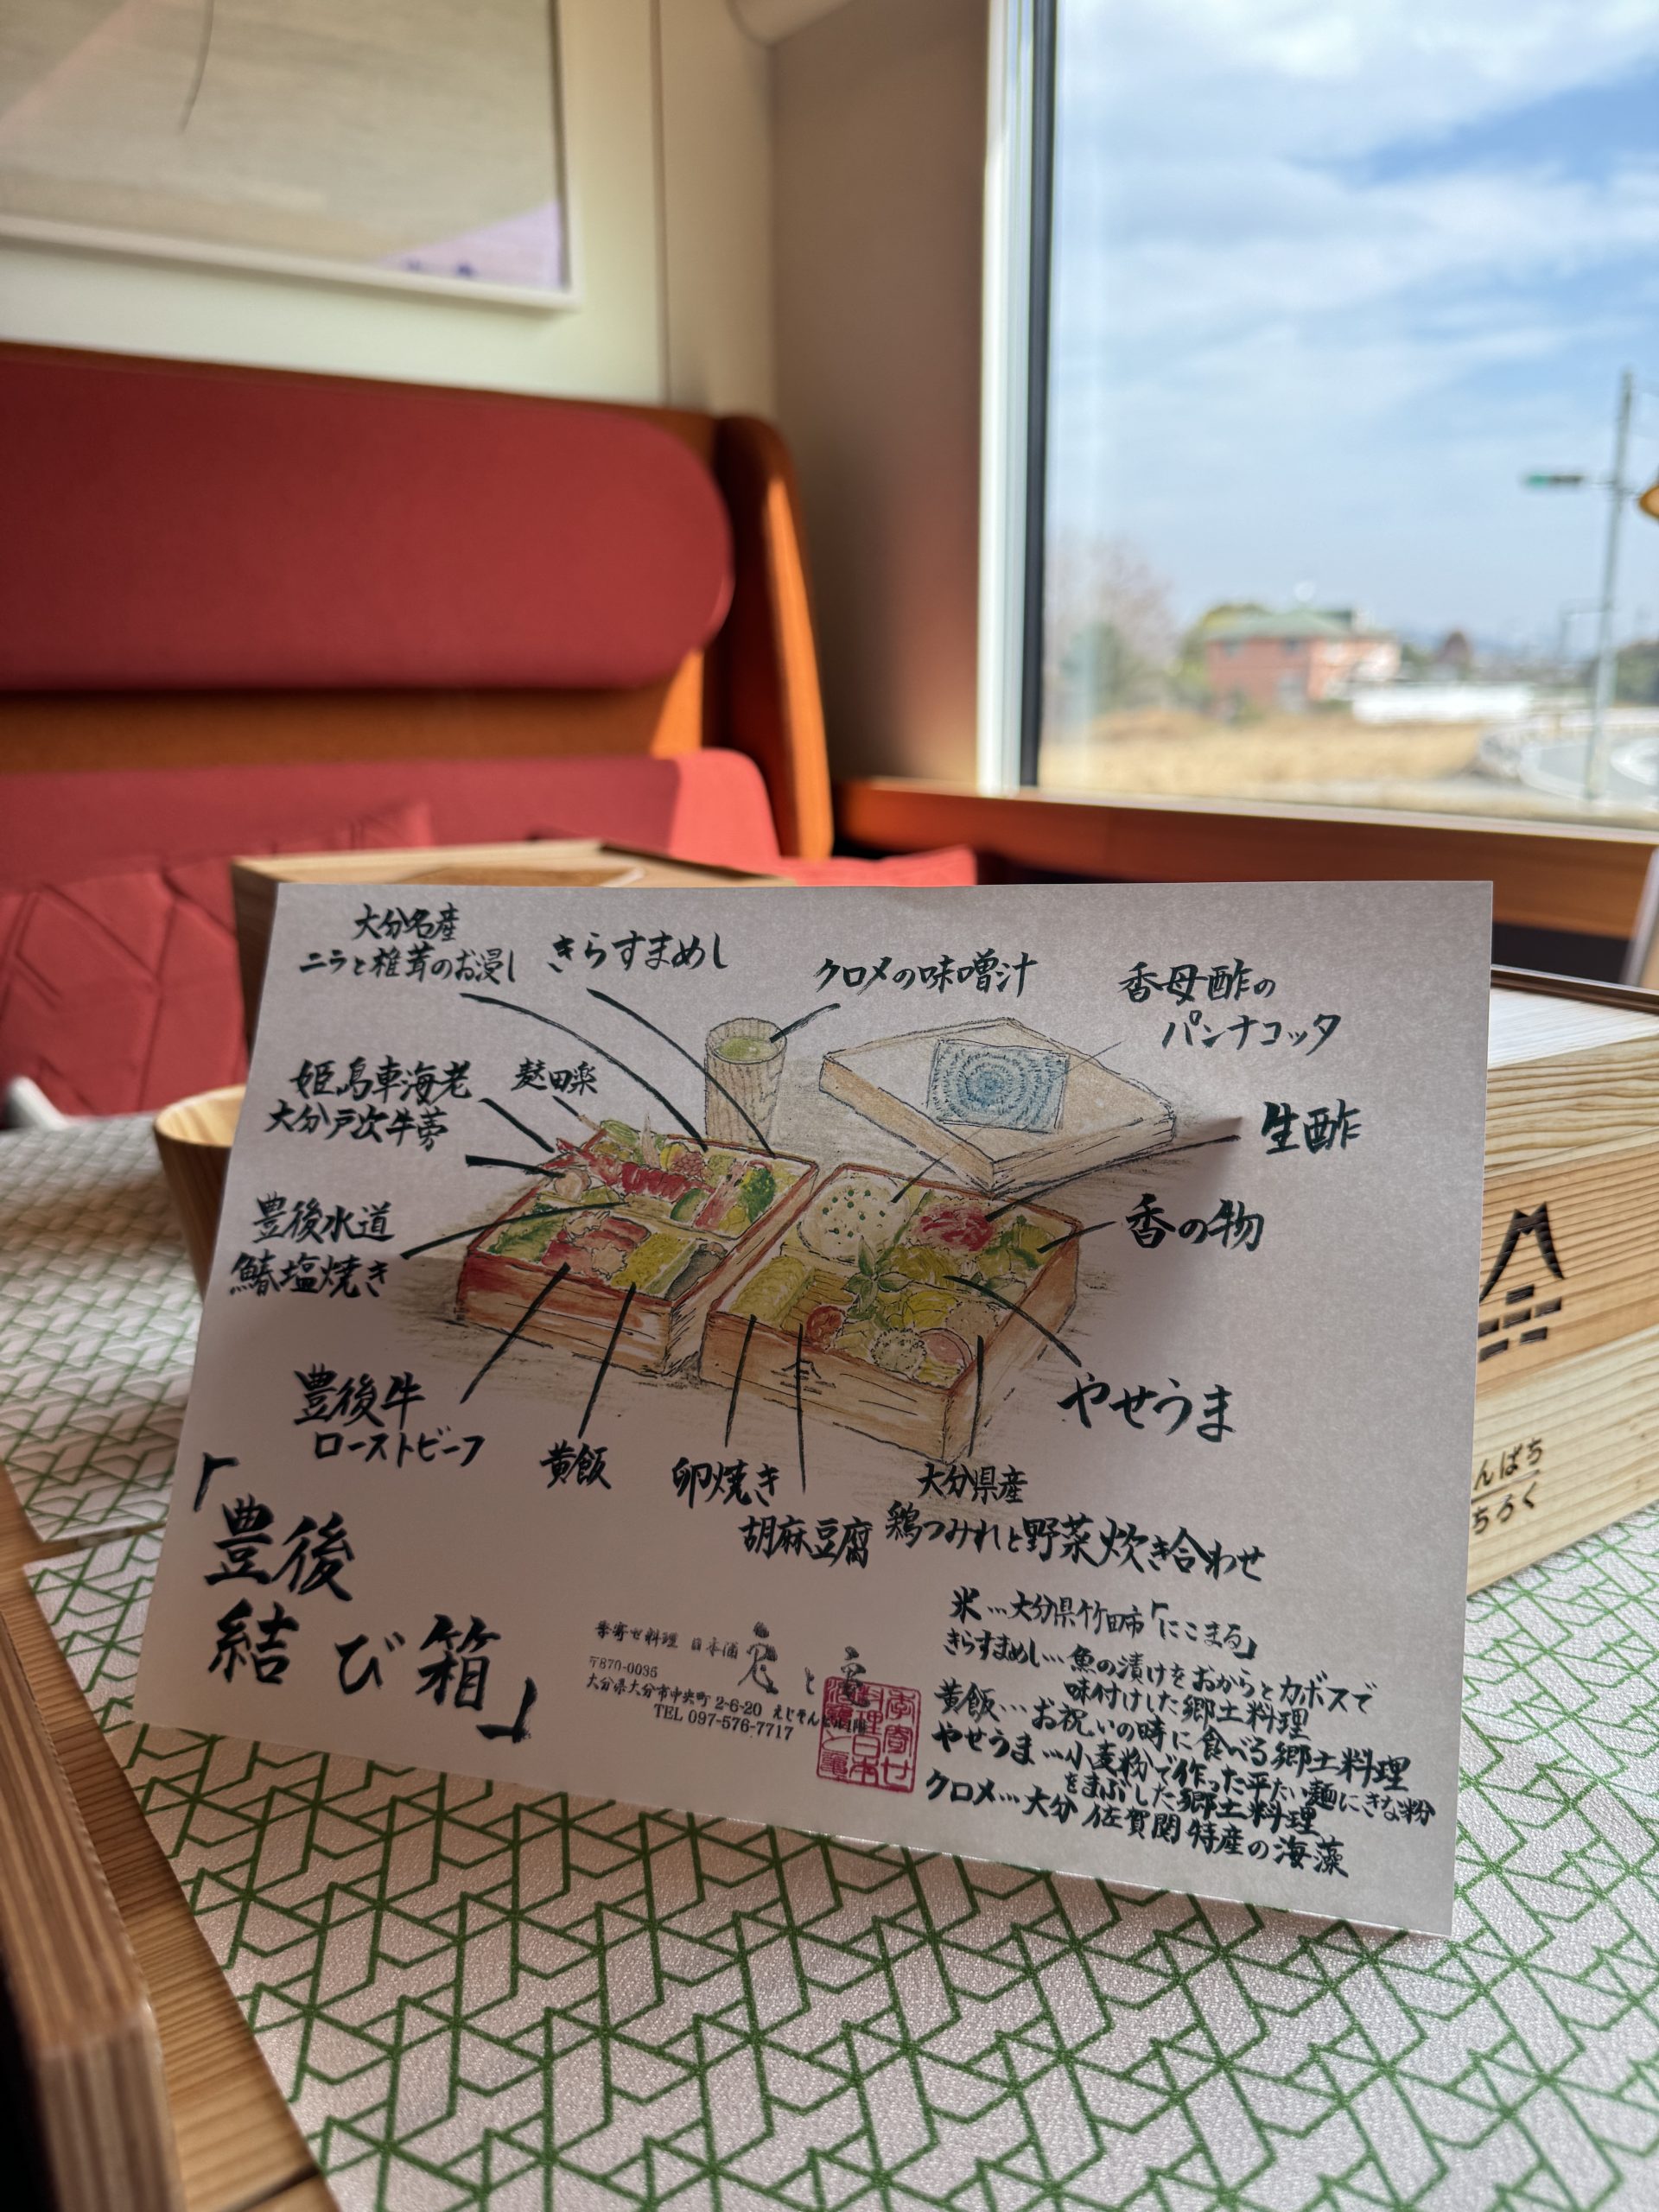 大分名産
ニラと椎茸のお浸し
きらすまめし
クロメの味噌汁
香母酢の
パンナコッタ
姫島車海老
大分戸次牛蒡
麩田楽
生酢
豊後水道
鰆塩焼き
香の物
豊後牛
ローストビーフ
黄飯
卵焼き
胡麻豆腐
大分県産
鶏つみれと野菜炊き合わせ
やせうま
「豊後
結び箱」
季寄せ料理 日本酒
〒870-0035
大分県大分市中央町 2-6-20 えじそん
TEL 097-576-7717
米…大分県竹田市「にこまる」
きらすまめし…魚の漬けをおからとカボスで
味付けした郷土料理
黄飯…お祝いの時に食べる郷土料理
やせうま…小麦粉で作った平たい麺にきな粉
をまぶした郷土料理
クロメ…大分 佐賀関特産の海藻
んぱち
ちろく